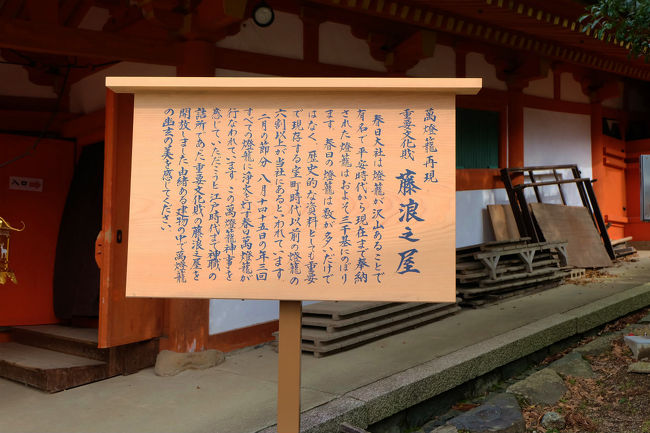 萬燈籠再現
重要文化財 藤浪之屋
春日大社は燈籠が沢山あることで
有名で平安時代から現在まで奉納
された燈籠はおよそ三千基にのぼり
ます。春日の燈籠は数が多いだけで
はなく、歴史的な資料としても重要
で現存する室町時代以前の燈籠の
六割以上が当社にあるといわれています。
二月の節分 八月十四十五日の年三回
すべての燈籠に浄火を献ずる春日萬燈籠が
行なわれています。この萬燈籠神事を
感じていただこうと江戸時代まで神職の
詰所であった重要文化財の藤浪之屋を
開放しました。由緒のある建物の中で萬燈籠
の幽玄の美を感じてください。
入口